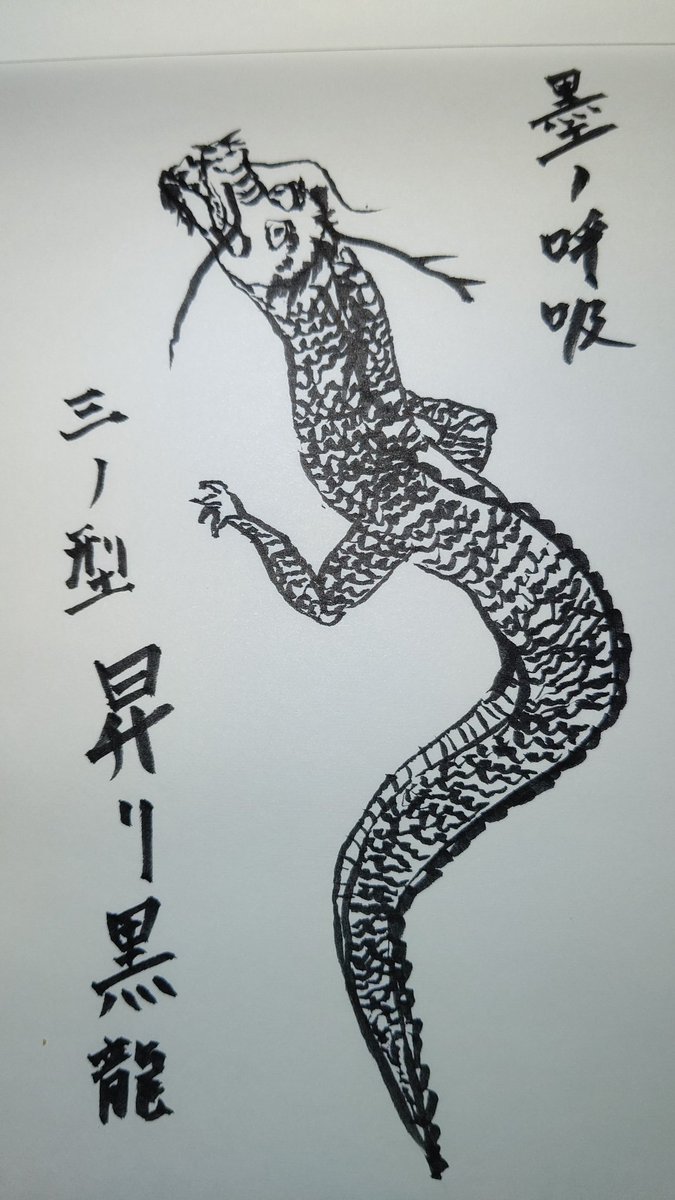 墨ノ呼吸
三ノ型 昇リ黒龍